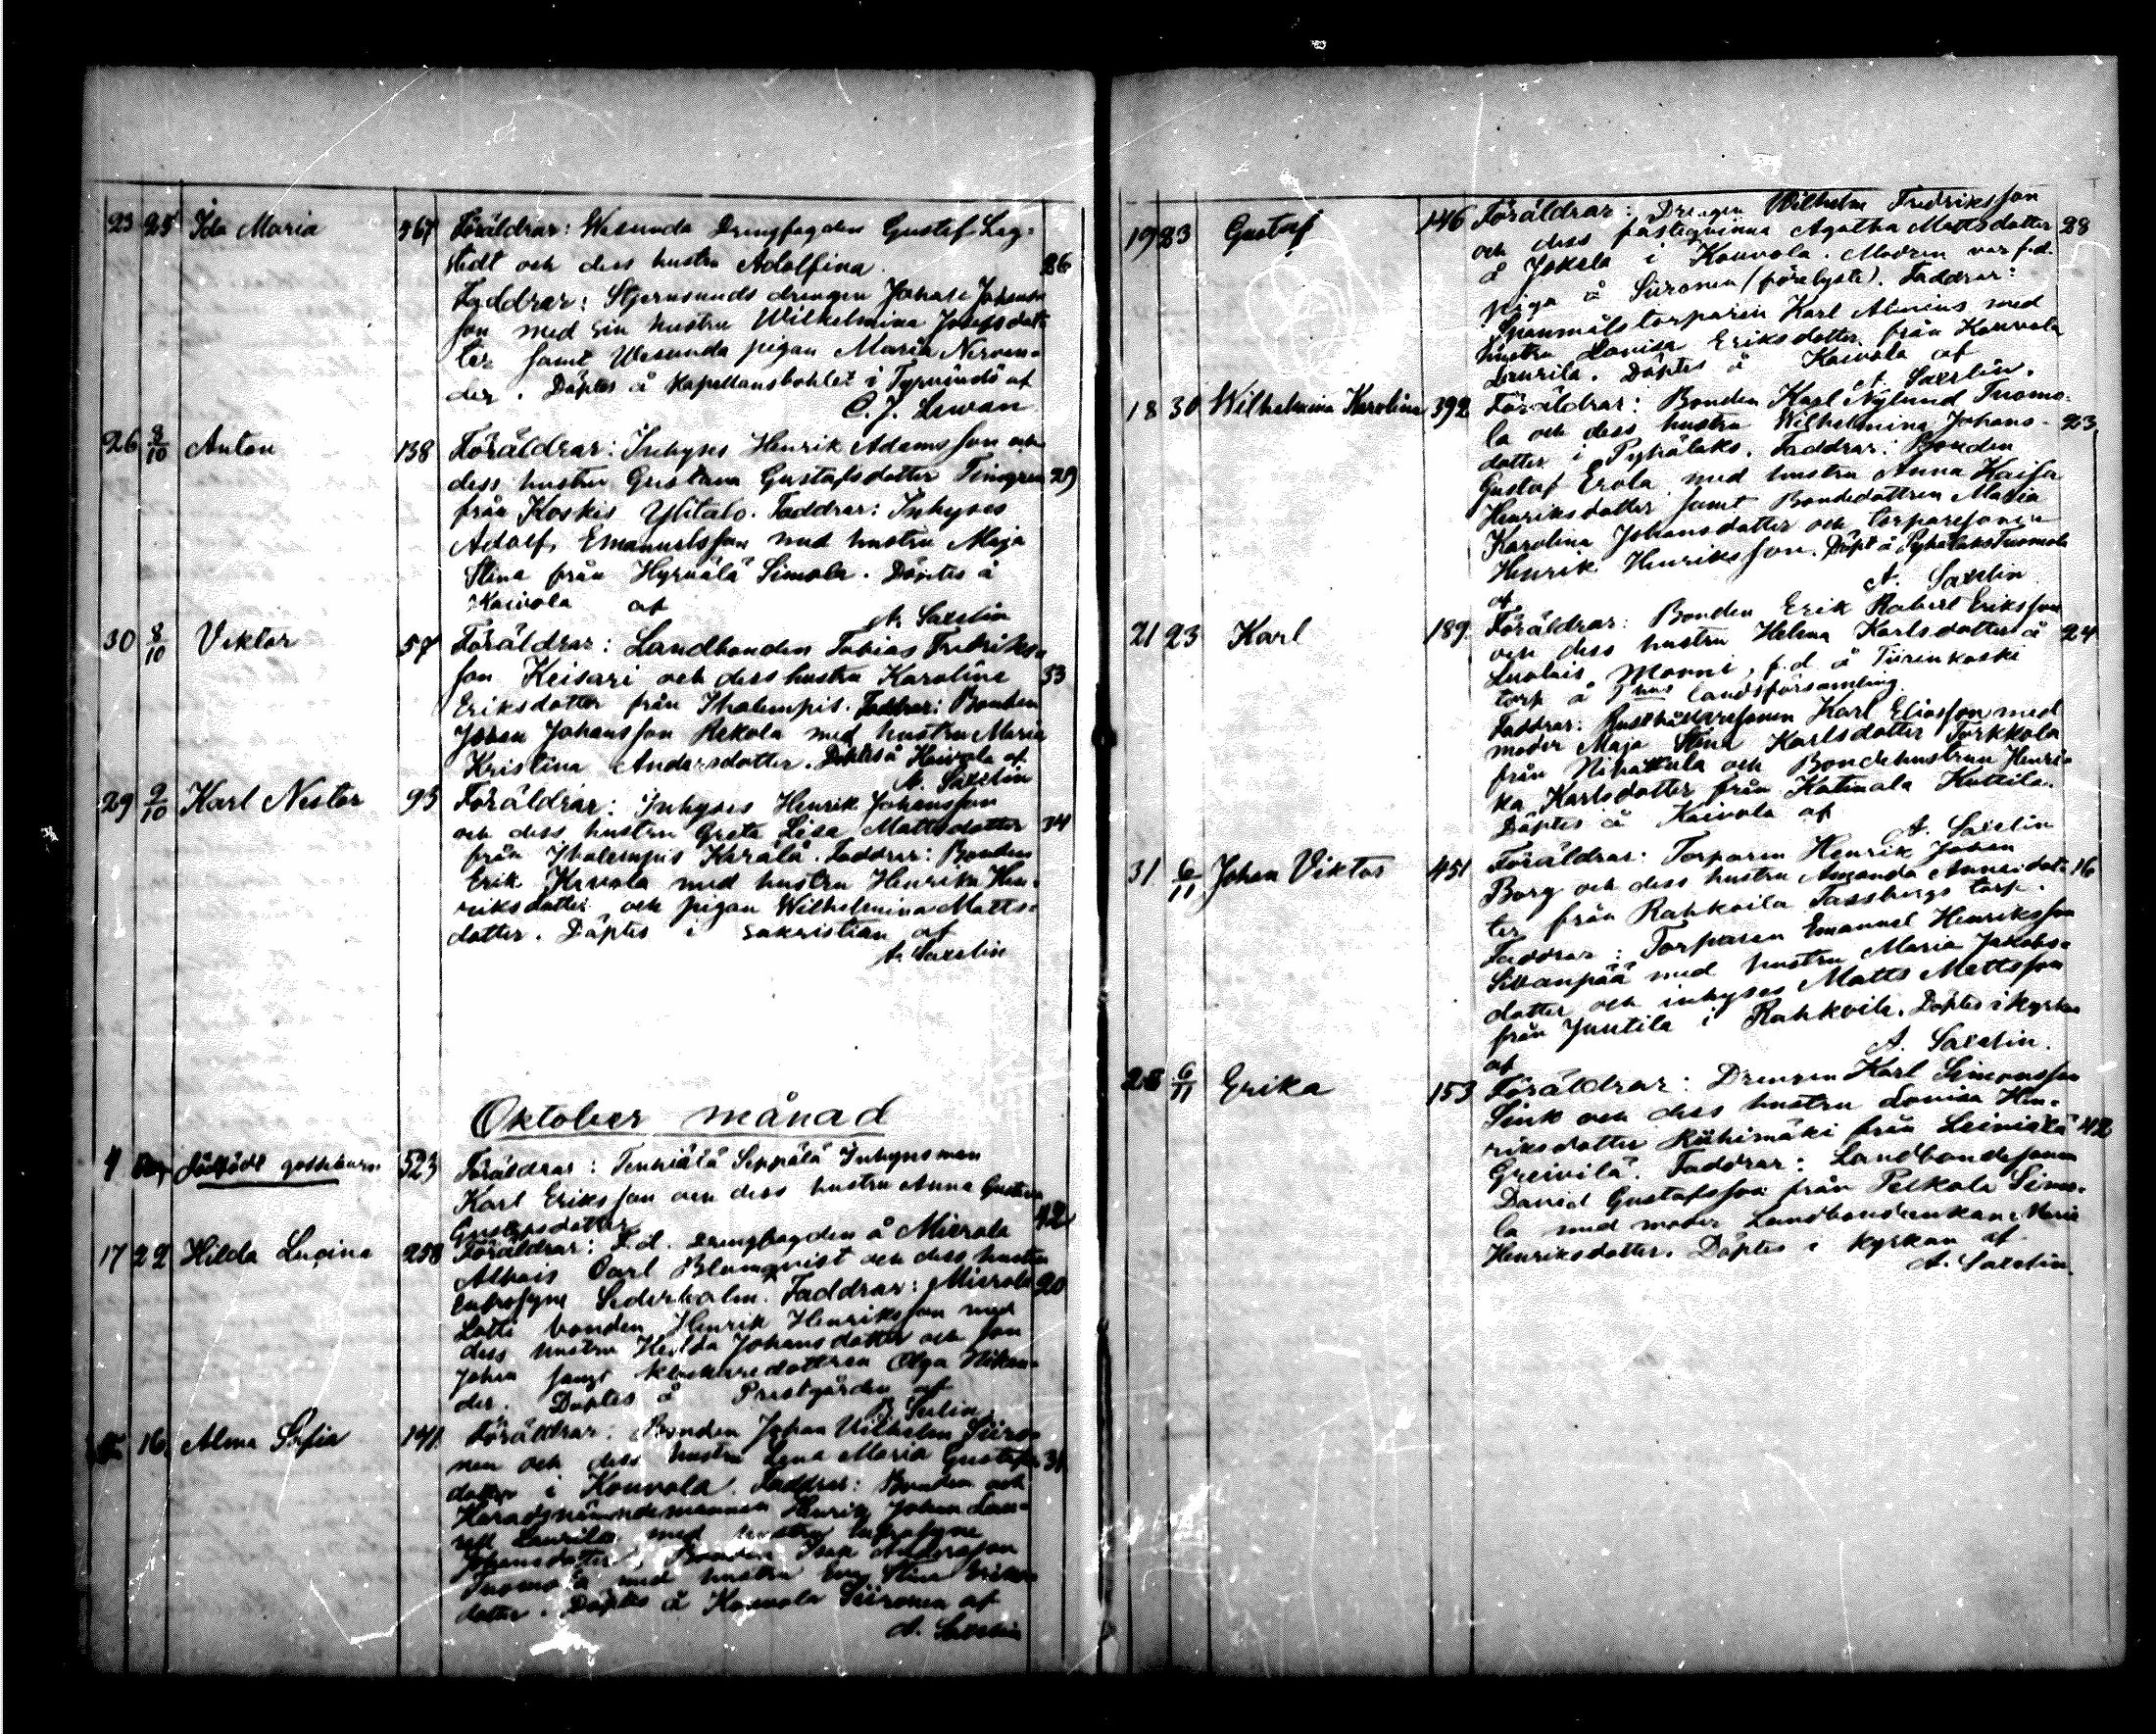 23 25 Ida Maria 467 Föräldrar: Wesunda Drengfogden Gustaf Lag-
stedt och dess hustru Adolfina. 26
Faddrar: Stjernsunds drengen Johan Johans-
son med sin hustru Wilhelmina Josefsdot-
ter samt Wesunda pigan Maria Nerven-
der. Döptes å Kapellansbohlet i Tyrvändö af
C. J. Lewan
26 8/10 Anton 138 Föräldrar: Inhyses Henrik Adamsson och
dess hustru Gustava Gustafsdotter Finngren 29
från Koskis Ylitalo. Faddrar: Inhyses
Adolf Emanuelsson med hustru Maja
Stina från Hyrvälä Simola. Döptes å
Kaivola af
A. Saxelin
30 8/10 Viktor 57 Föräldrar: Landbonden Tobias Fredriks-
son Keisari och dess hustru Karolina 33
Eriksdotter från Ihalempis. Faddrar: Bonden
Johan Johansson Rekola med hustru Maria
Kristina Andersdotter. Döptes å Kaivola af
A. Saxelin
29 9/10 Karl Nestor 93 Föräldrar: Inhyses Henrik Johansson
och dess hustru Greta Lisa Mattsdotter 34
från Ihalempis Kerälä. Faddrar: Bonden
Erik Kervola med hustru Henrika Hen-
riksdotter och pigan Wilhelmina Matts-
dotter. Döptes i sakristian af
A. Saxelin
Oktober månad
4 Dödfödt gossebarn 523 Föräldrar: Tenhiälä Seppälä Inhysman
Karl Eriksson och dess hustru Anna Gustava
Gustafsdotter 42
17 22 Hilda Lucina 258 Föräldrar: F.d. drengfogden å Mierola
Alhais Carl Blomqvist och dess hustru
Eufrosyne Sederholm. Faddrar: Mierola 20
Lotti bonden Henrik Henriksson med
dess hustru Hedda Johansdotter och son
Johan samt klockaredottren Olga Nikan-
der. Döptes å Prestgården af
B. Serlin
16 Alma Sofia 141 Föräldrar: Bonden Johan Wilhelm Siiro-
nen och dess hustru Lena Maria Gustafs- 31
dotter i Kouvola. Faddrar: Bonden och
Häradsnämndemannen Henrik Johan Lau-
rell Laurila med hustru Eufrosyne
Johansdotter, Bonden Isak Andersson
Tuomola med hustru Eva Stina Eriks-
dotter. Döptes å Kouvola Siironen af
A. Saxelin
19 23 Gustaf 146 Föräldrar: Drengen Wilhelm Fredriksson
och dess fästeqvinna Agatha Mattsdotter 28
å Jokela i Kouvola. Modren var f.d.
piga å Siironen (förelyste). Faddrar:
Spanmålstorparen Karl Alenius med
hustru Lovisa Eriksdotter från Kouvola
Laurila. Döptes å Kaivola af
A. Saxelin.
18 30 Wilhelmina Karolina 392 Föräldrar: Bonden Karl Nylund Tuomo-
la och dess hustru Wilhelmina Johans- 23
dotter i Pyhälaks. Faddrar: Bonden
Gustaf Erola med hustru Anna Kaisa
Henriksdotter samt Bondedottren Maria
Karolina Johansdotter och torparesonen
Henrik Henriksson. Döpt å Pyhälaks Tuomola
af A. Saxelin
21 23 Karl 189 Föräldrar: Bonden Erik Robert Eriksson
och dess hustru Helena Karlsdotter å 24
Luolais Monni, f.d. å Tiirinkoski
torp å Thus landsförsamling.
Faddrar: Rusthållaresonen Karl Eliasson med
moder Maja Stina Karlsdotter Torkkola
från Nihattula och Bondehustrun Henri-
ka Karlsdotter från Katinala Kuttila.
Döptes å Kaivola af
A. Saxelin
31 6/11 Johan Viktor 451 Föräldrar: Torparen Henrik Johan
Borg och dess hustru Amanda Annsidot- 16
ter från Rahkoila Tassbergs torp.
Faddrar: Torparen Emanuel Henriksson
Sivanpää med hustru Maria Jakobs-
dotter och inhyses Matts Mattsson
från Juutila i Rahkoila. Döptes i kyrkan
af A. Saxelin.
28 6/11 Erika 153 Föräldrar: Drengen Karl Simonsson
Sink och dess hustru Lovisa Hen-
riksdotter Riihimäki från Leiniälä 42
Greivilä. Faddrar: Landbondesonen
David Gustafsson från Pelkola Simo-
la med moder Landbondeenkan Maria
Henriksdotter. Döptes i kyrkan af
A. Saxelin.